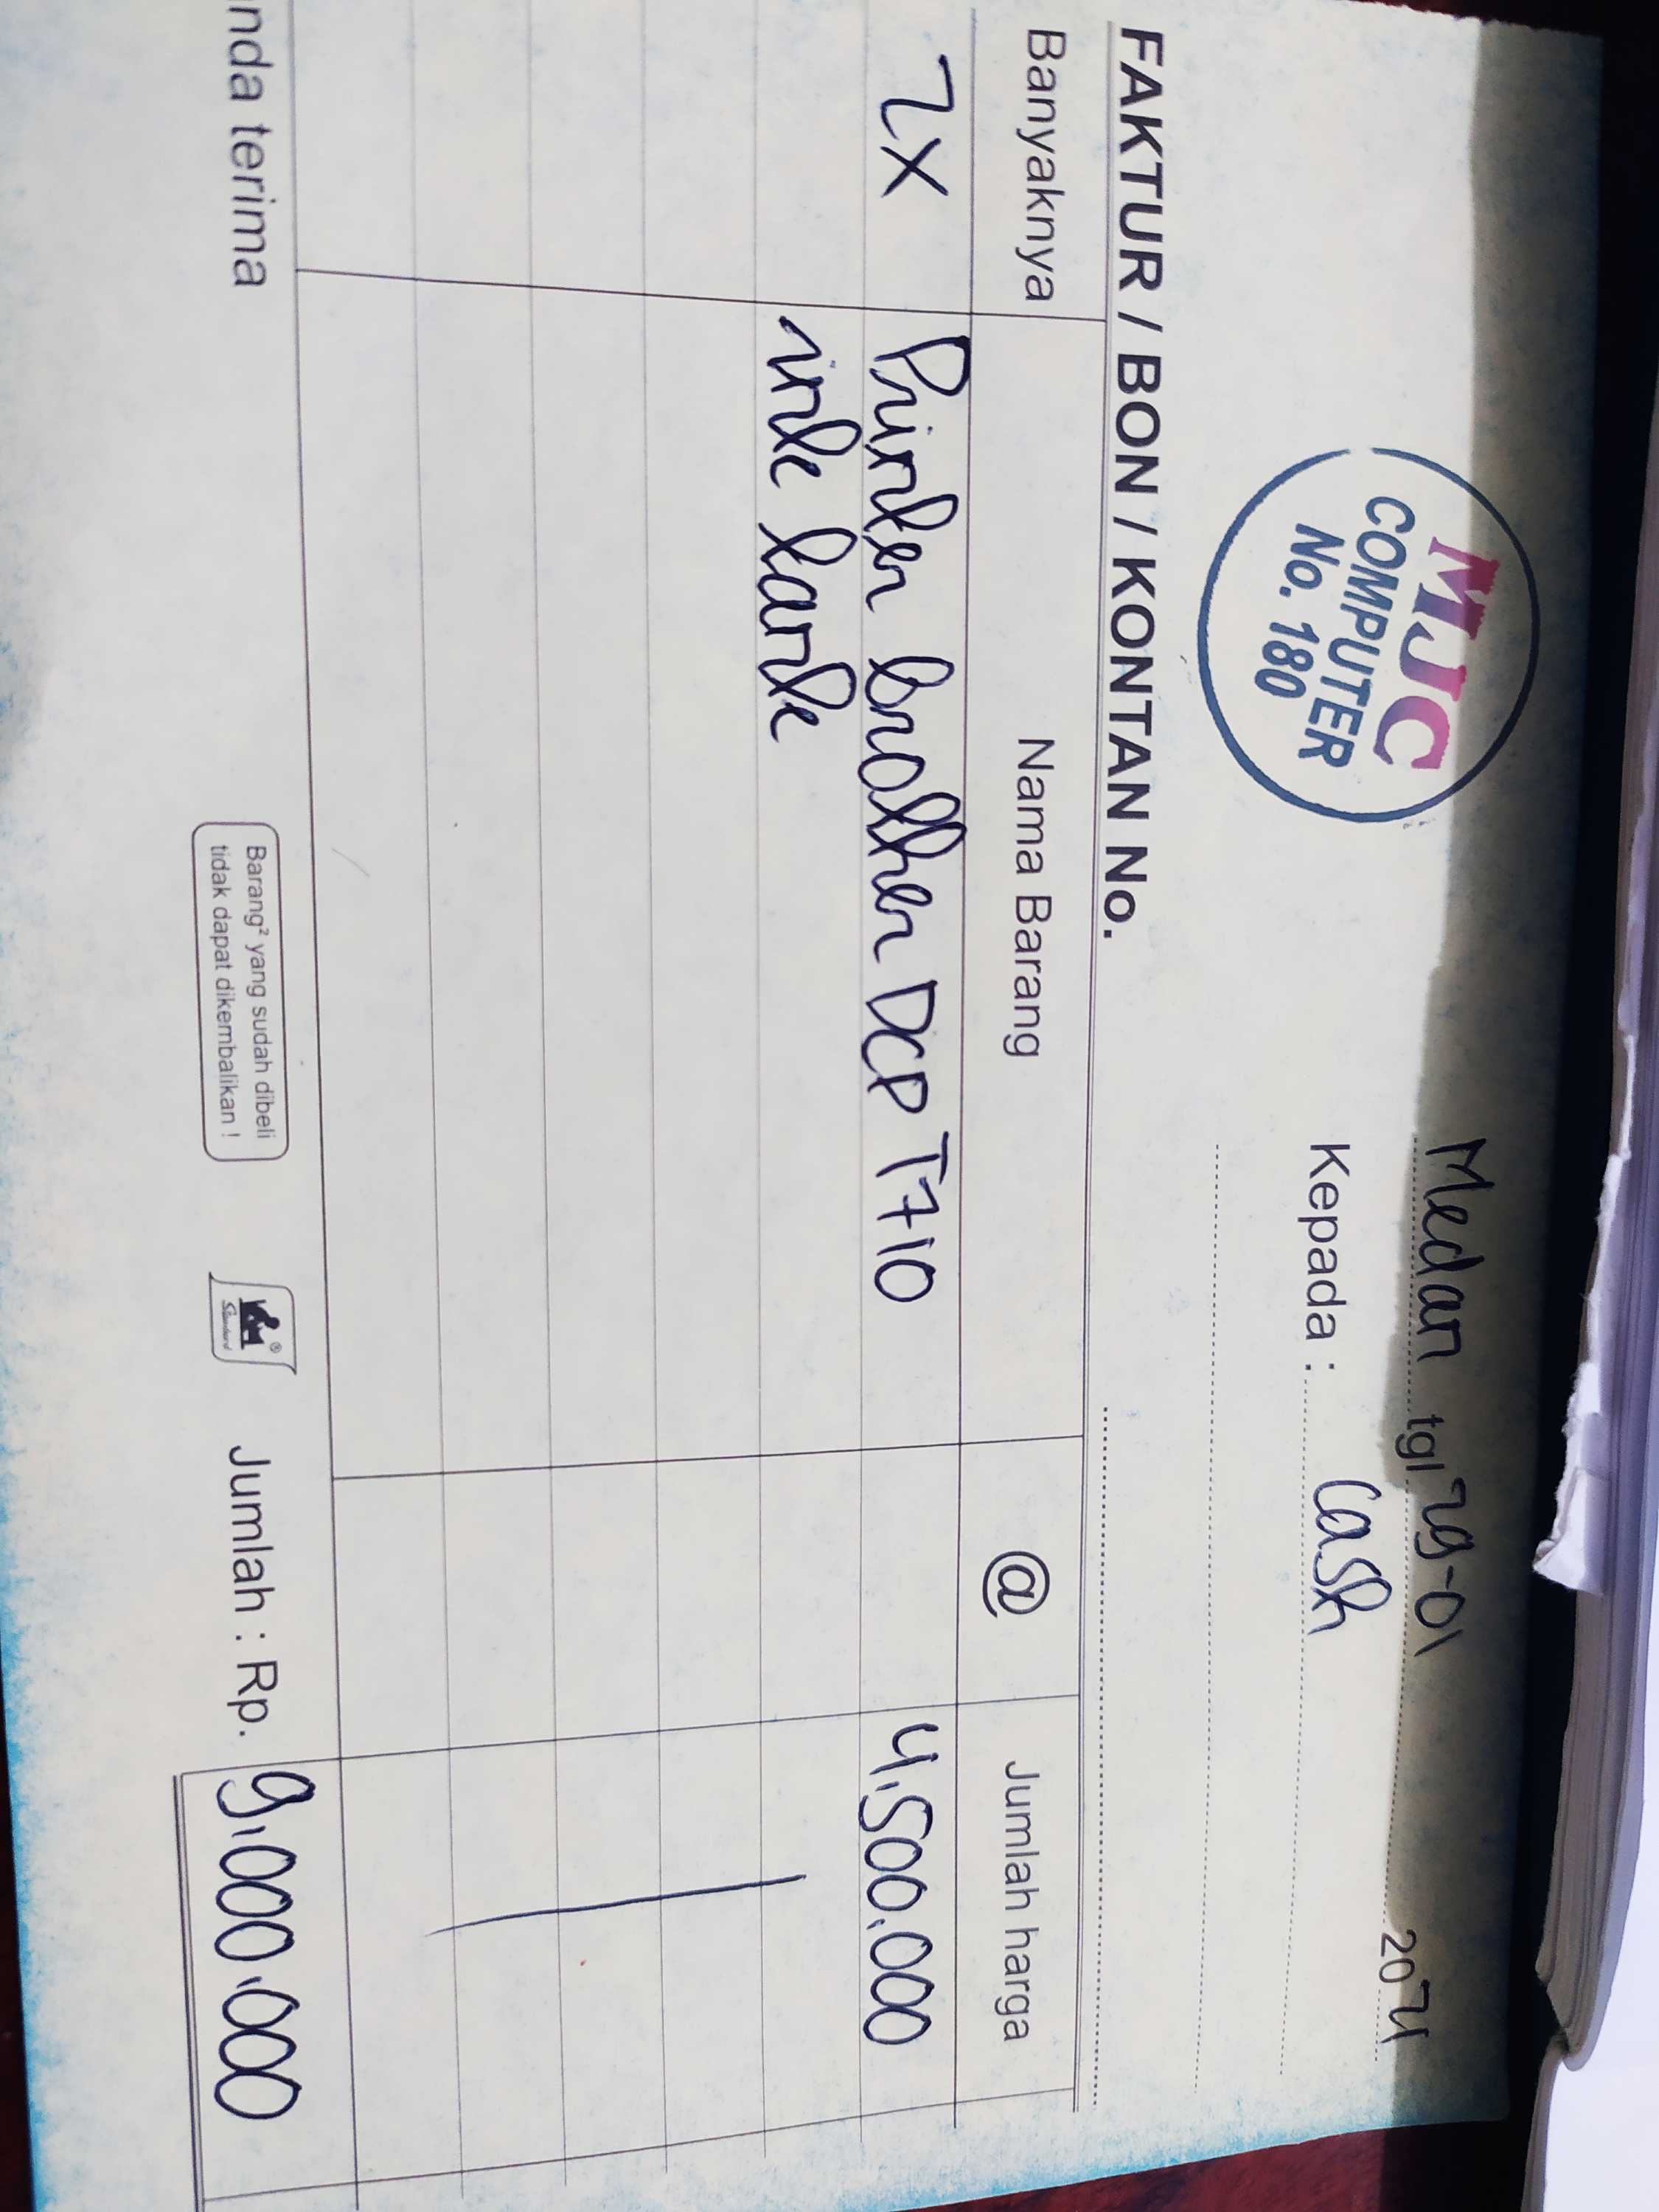 MJC
COMPUTER
No. 180
Medan tgl 29-01 2021
Kepada : Cash
FAKTUR / BON / KONTAN No.
Banyaknya Nama Barang @ Jumlah harga
2X Printer brother DCP T710 4.500.000
ink tank
nda terima
Barang² yang sudah dibeli
tidak dapat dikembalikan !
Jumlah : Rp. 9.000.000